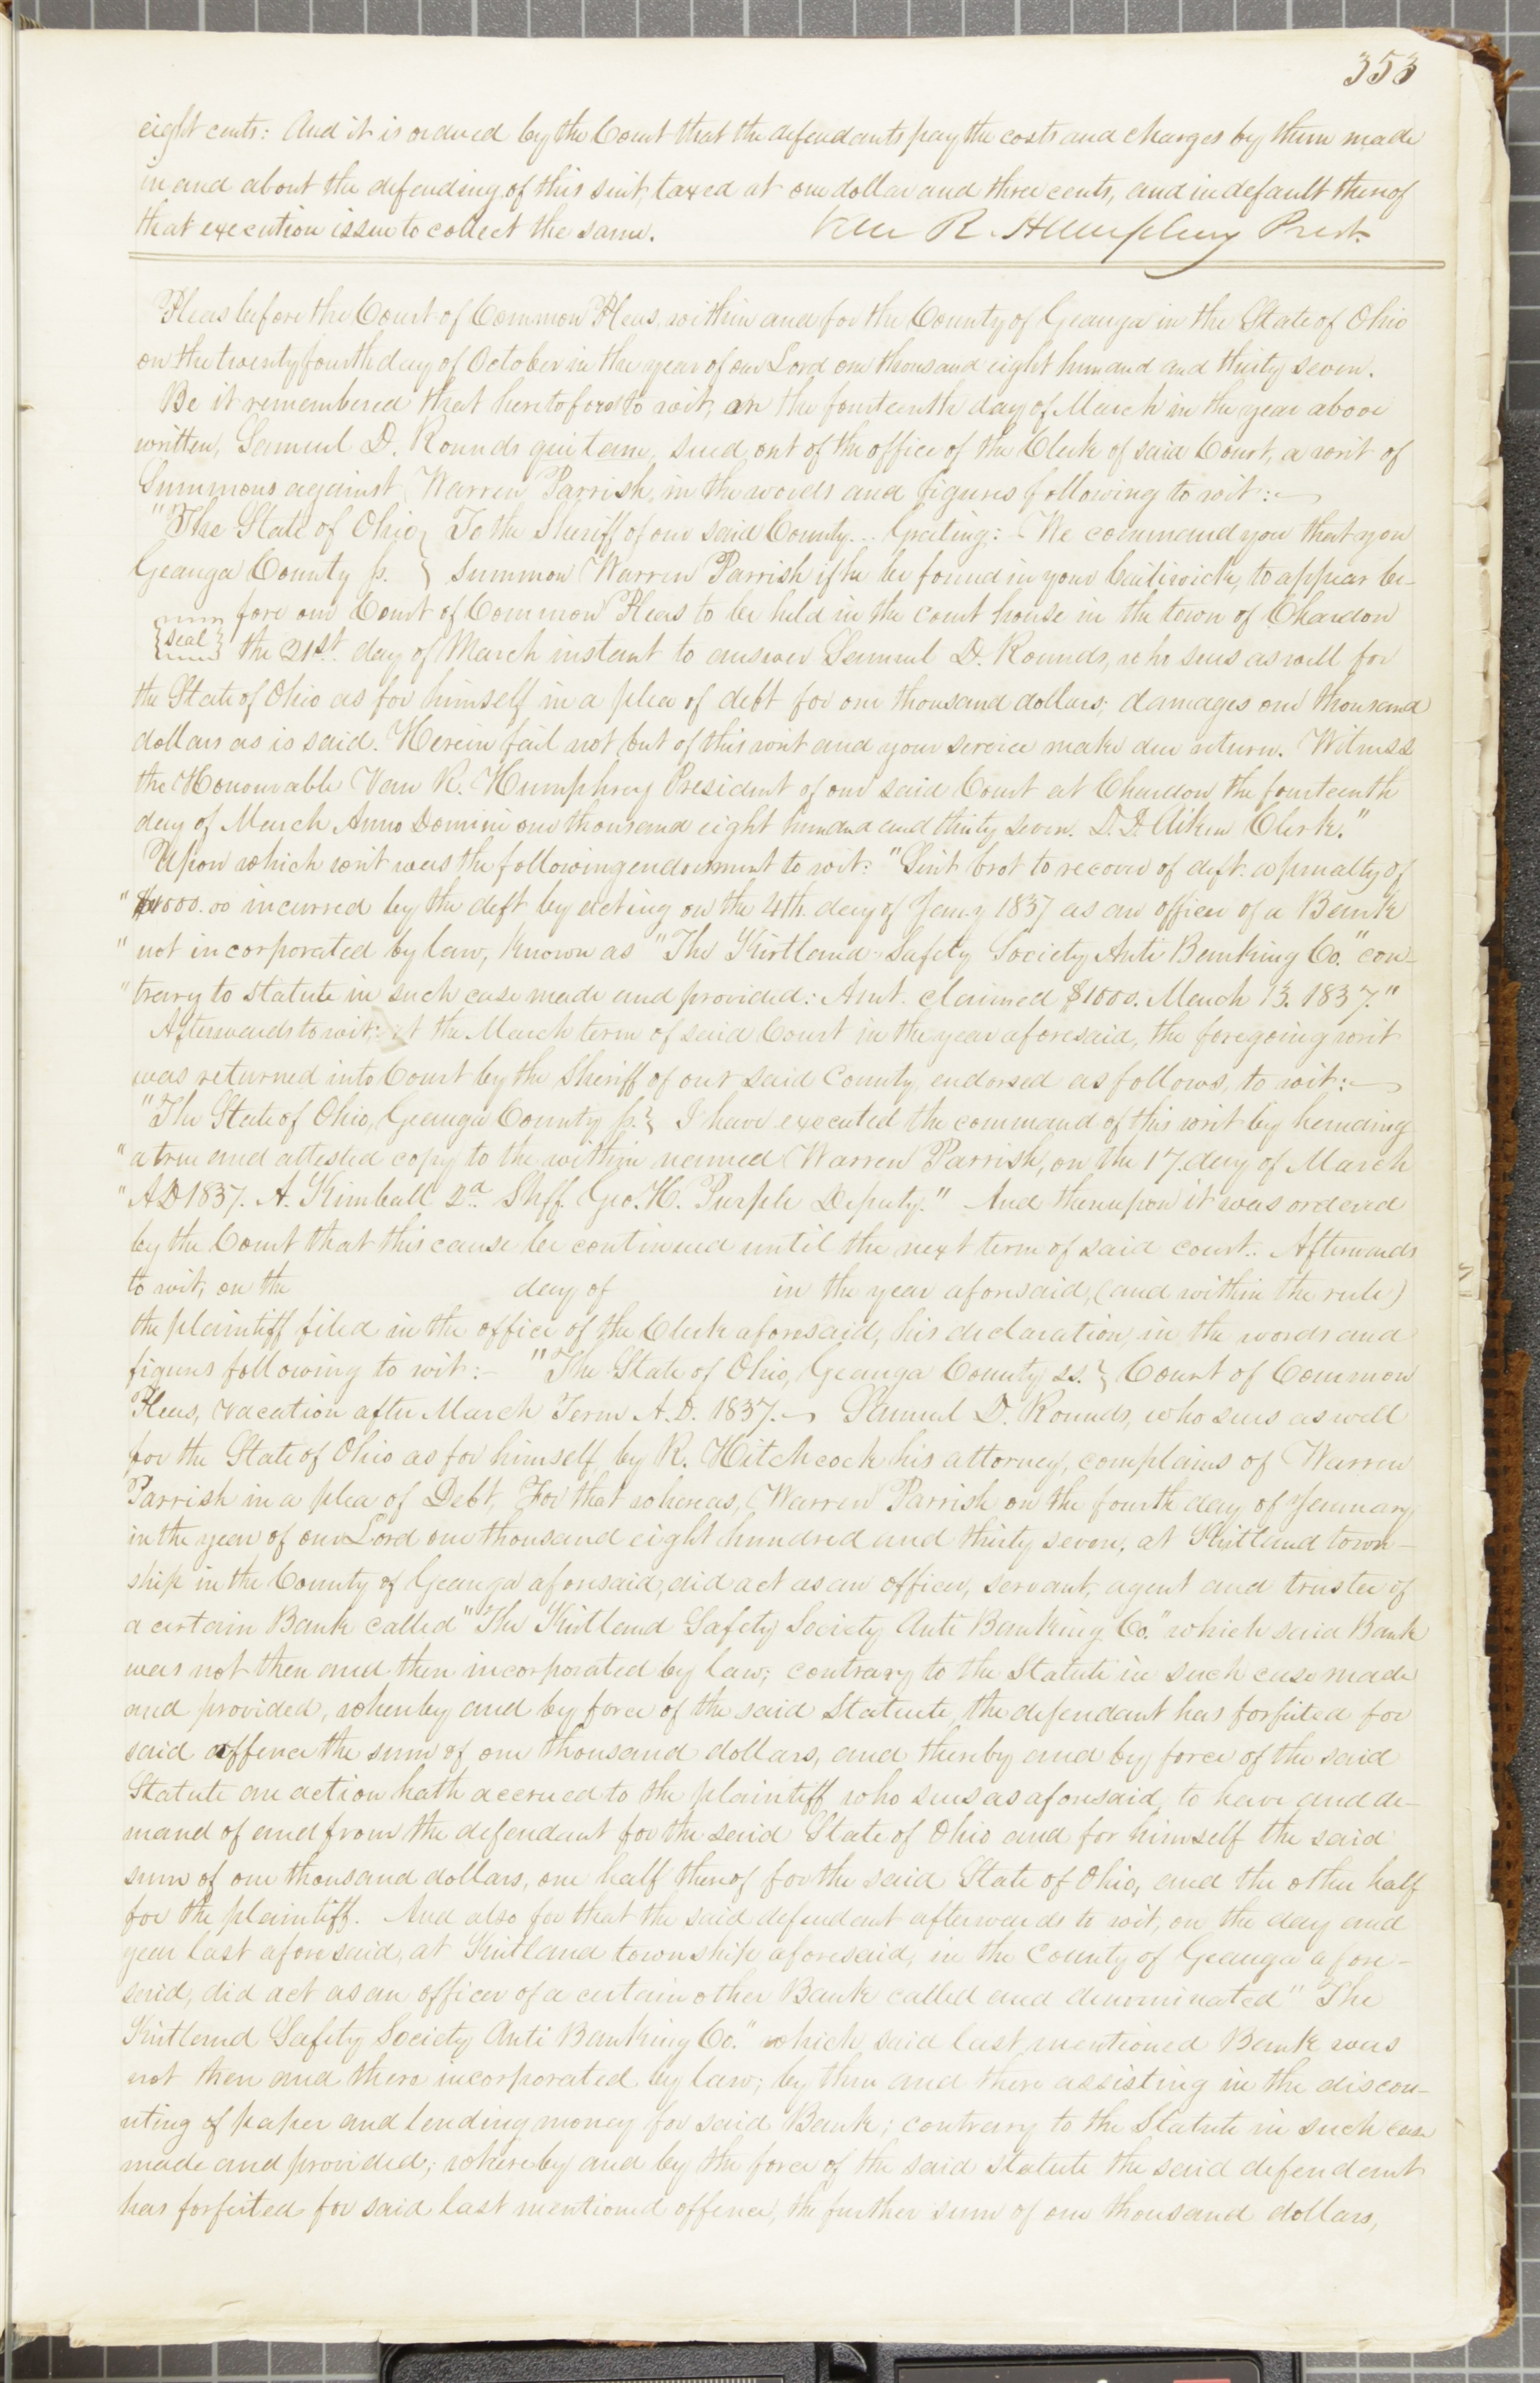 353
eight cents: And it is ordered by the Court that the defendants pay the costs and charges by them made
in and about the defending of this suit, taxed at one dollar and three cents, and in default thereof
that execution issue to collect the same. Van R. Humphrey Prest.
Pleas before the Court of Common Pleas, within and for the County of Geauga in the State of Ohio
on the twenty fourth day of October in the year of our Lord one thousand eight hundred and thirty seven.
Be it remembered that heretofore to wit, on the fourteenth day of March in the year above
written, Samuel D. Rounds qui tam, sued out of the office of the Clerk of said Court, a writ of
Summons against Warren Parrish, in the words and figures following to wit:—
"The State of Ohio } To the Sheriff of our said County... Greeting: - We command you that you
Geauga County ss. } summon Warren Parrish if he be found in your bailiwick, to appear be-
fore our Court of Common Pleas to be held in the court house in the town of Chardon
{seal} the 21st day of March instant to answer Samuel D. Rounds, who sues as well for
the State of Ohio as for himself in a plea of debt for one thousand dollars; damages one thousand
dollars as is said. Herein fail not but of this writ and your service make due return. Witness
the Honourable Van R. Humphrey President of our said Court at Chardon the fourteenth
day of March Anno Domini one thousand eight hundred and thirty seven. D. D. Aiken Clerk."
Upon which writ was the following endorsement to wit: "Suit brot to recover of deft. a penalty of
" $1000.00 incurred by the deft by acting on the 4th day of Jany 1837 as an officer of a Bank
" not incorporated by law, known as "The Kirtland Safety Society Anti Banking Co." con-
" trary to statute in such case made and provided: Amt. claimed $1000. March 13. 1837."
Afterwards to wit; at the March term of said Court in the year aforesaid, the foregoing writ
was returned into Court by the Sheriff of our said County, endorsed as follows, to wit:—
"The State of Ohio, Geauga County ss.} I have executed the command of this writ by handing
" a true and attested copy to the within named Warren Parrish, on the 17. day of March
" AD 1837. A. Kimball 2d Shff. Geo. H. Purple Deputy." And thereupon it was ordered
by the Court that this cause be continued until the next term of said court. Afterwards
to wit, on the day of in the year aforesaid, (and within the rule)
the plaintiff filed in the office of the Clerk aforesaid, his declaration, in the words and
figures following to wit:- "The State of Ohio, Geauga County ss.} Court of Common
Pleas, vacation after March Term A.D. 1837.— Samuel D. Rounds, who sues as well
for the State of Ohio as for himself, by R. Hitchcock his attorney, complains of Warren
Parrish in a plea of Debt, For that whereas, Warren Parrish on the fourth day of January
in the year of our Lord one thousand eight hundred and thirty seven, at Kirtland town-
ship in the County of Geauga aforesaid, did act as an officer, servant, agent and trustee of
a certain Bank called "The Kirtland Safety Society Anti Banking Co." which said Bank
was not then and there incorporated by law; contrary to the Statute in such case made
and provided, whereby and by force of the said Statute, the defendant has forfeited for
said offence the sum of one thousand dollars, and thereby and by force of the said
Statute an action hath accrued to the plaintiff who sues as aforesaid, to have and de-
mand of and from the defendant for the said State of Ohio and for himself the said
sum of one thousand dollars, one half thereof for the said State of Ohio, and the other half
for the plaintiff. And also for that the said defendant afterwards to wit, on the day and
year last aforesaid, at Kirtland township aforesaid, in the County of Geauga afore-
said, did act as an officer of a certain other Bank called and denominated "The
Kirtland Safety Society Anti Banking Co." which said last mentioned Bank was
not then and there incorporated by law; by then and there assisting in the discou-
nting of paper and lending money for said Bank; contrary to the Statute in such case
made and provided; whereby and by the force of the said statute the said defendant
has forfeited for said last mentioned offence, the further sum of one thousand dollars,